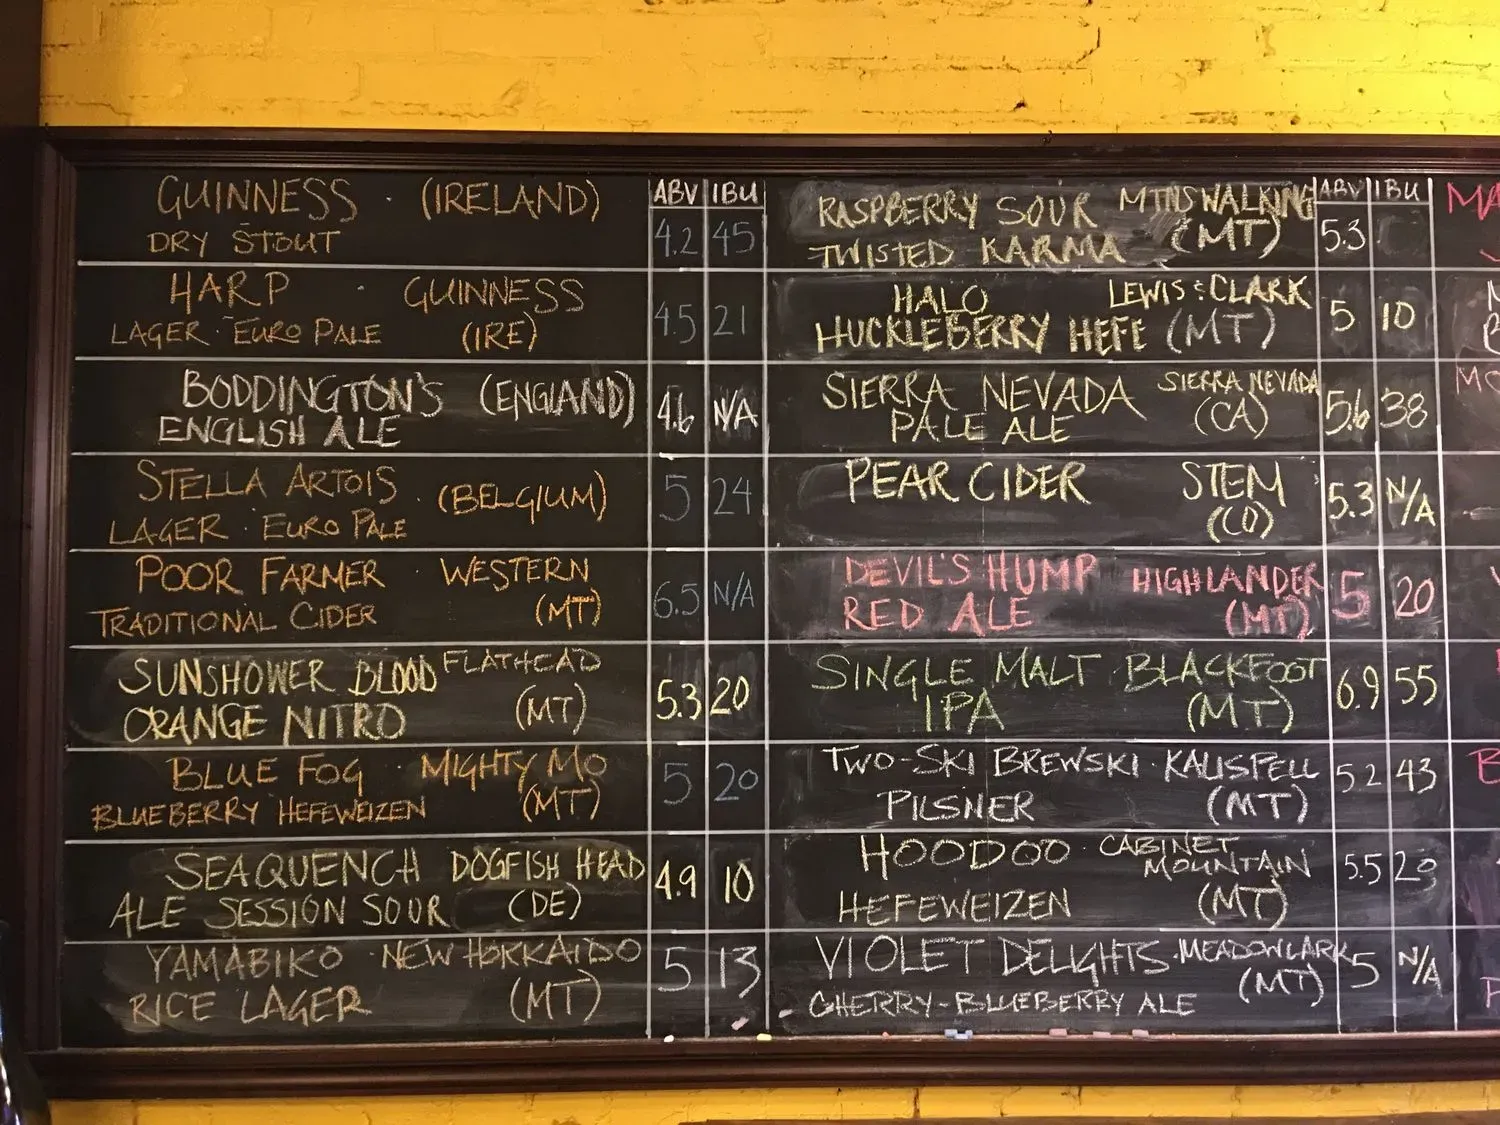 ABV IBU
GUINNESS · (IRELAND)
DRY STOUT
4.2 45
HARP · GUINNESS
LAGER · EURO PALE (IRE)
4.5 21
BODDINGTON'S (ENGLAND)
ENGLISH ALE
4.6 N/A
STELLA ARTOIS · (BELGIUM)
LAGER · EURO PALE
5 24
POOR FARMER · WESTERN
TRADITIONAL CIDER (MT)
6.5 N/A
SUNSHOWER BLOOD FLATHEAD
ORANGE NITRO (MT)
5.3 20
BLUE FOG · MIGHTY MO
BLUEBERRY HEFEWEIZEN (MT)
5 20
SEAQUENCH DOGFISH HEAD
ALE SESSION SOUR (DE)
4.9 10
YAMABIKO · NEW HOKKAIDO
RICE LAGER (MT)
5 13
ABV IBU
RASPBERRY SOUR MTNS WALKING
TWISTED KARMA (MT)
5.3
HALO LEWIS & CLARK
HUCKLEBERRY HEFE (MT)
5 10
SIERRA NEVADA SIERRA NEVADA
PALE ALE (CA)
5.6 38
PEAR CIDER STEM
(CO)
5.3 N/A
DEVIL'S HUMP HIGHLANDER
RED ALE (MT)
5 20
SINGLE MALT BLACKFOOT
IPA (MT)
6.9 55
TWO-SKI BREWSKI · KALISPELL
PILSNER (MT)
5.2 43
HOODOO · CABINET
MOUNTAIN
HEFEWEIZEN (MT)
5.5 20
VIOLET DELIGHTS · MEADOWLARK
CHERRY-BLUEBERRY ALE (MT)
5 N/A